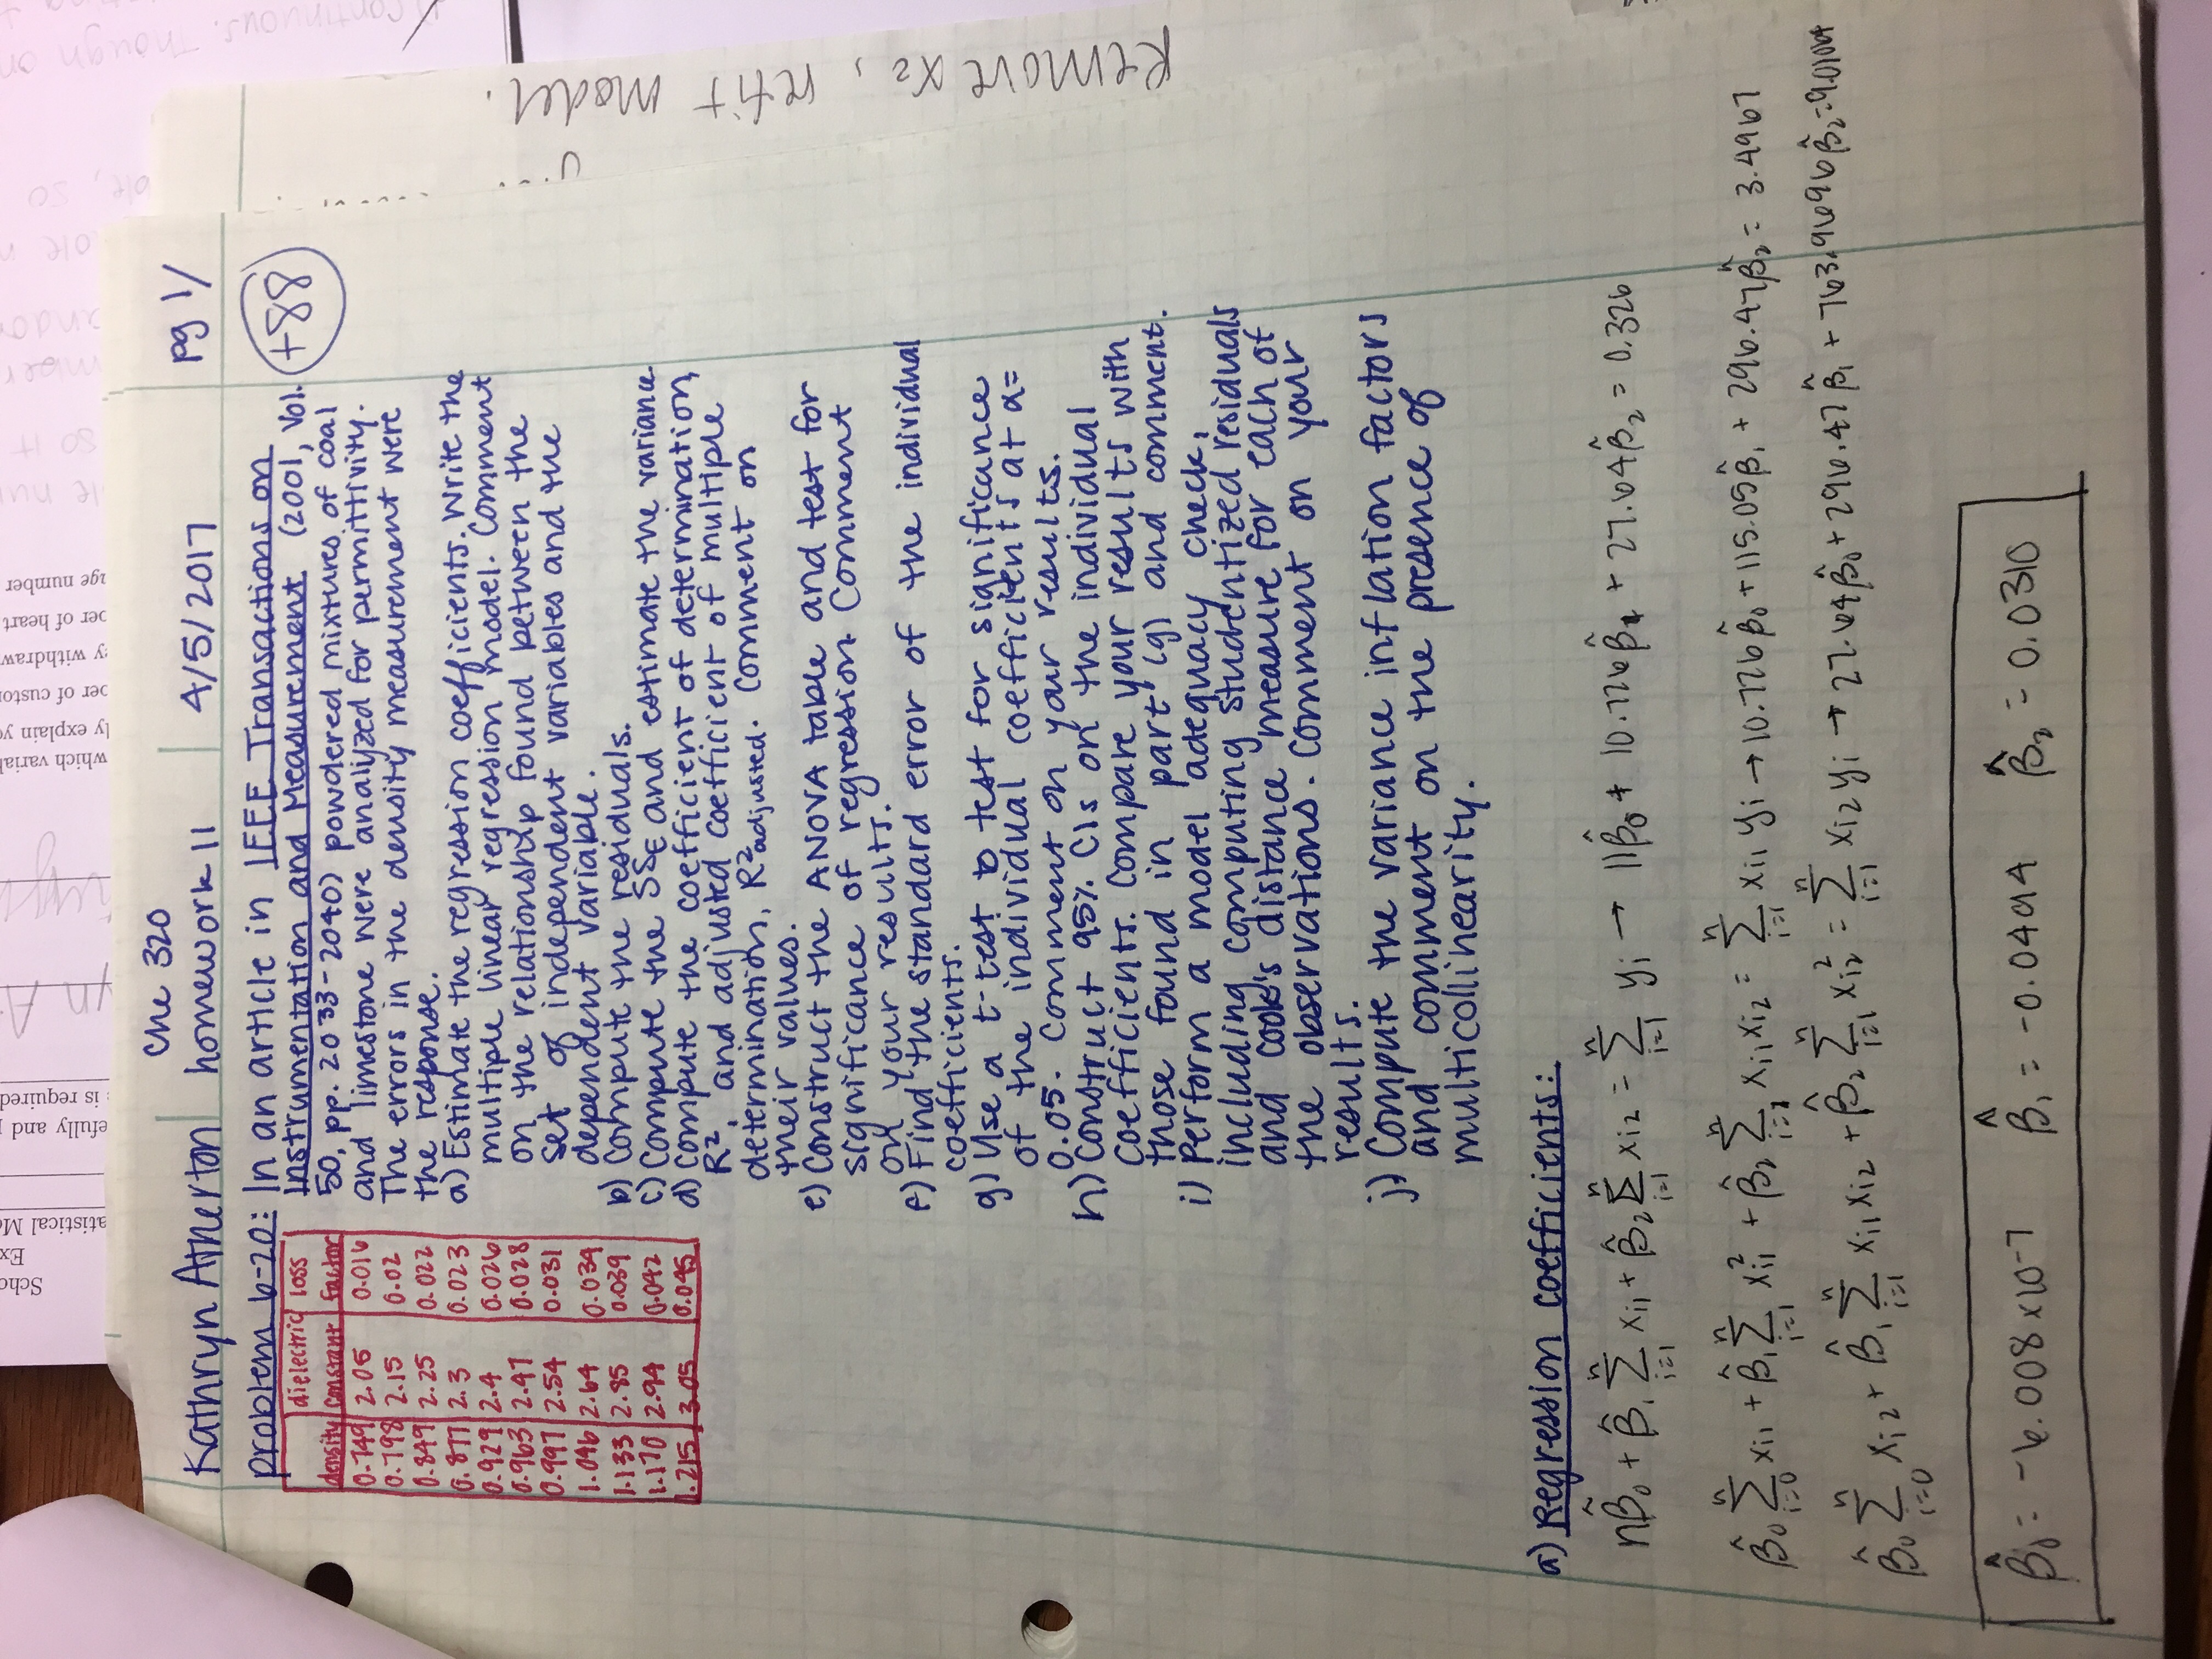 Scho
Ex
atistical Me
efully and
is required
yn A
which varial
ly explain yo
ber of custon
y withdraw
ber of heart
age number
Che 320
Kathryn Atherton
homework 11
4/5/2017
pg 1/
+88
problem 6-20: In an article in IEEE Transactions on
Instrumentation and Measurement (2001, Vol.
50, pp. 2033-2040) powdered mixtures of coal
and limestone were analyzed for permittivity.
The errors in the density measurement were
the response.
density | dielectric constant | loss factor
0.749 2.05 0.016
0.798 2.15 0.02
0.849 2.25 0.022
0.877 2.3 0.023
0.929 2.4 0.026
0.963 2.47 0.028
0.997 2.54 0.031
1.046 2.64 0.034
1.133 2.85 0.039
1.170 2.94 0.042
1.215 3.05 0.045
a) Estimate the regression coefficients. Write the
multiple linear regression model. Comment
on the relationship found between the
set of independent variables and the
dependent variable.
b) Compute the residuals.
c) Compute the SSE and estimate the variance.
d) Compute the coefficient of determination,
R², and adjusted coefficient of multiple
determination, R²adjusted. Comment on
their values.
e) Construct the ANOVA table and test for
significance of regression. Comment
on your results.
f) Find the standard error of the individual
coefficients.
g) Use a t-test to test for significance
of the individual coefficients at α=
0.05. Comment on your results.
h) Construct 95% CIs on the individual
coefficients. Compare your results with
those found in part (g) and comment.
i) Perform a model adequacy check,
including computing studentized residuals
and Cook's distance measure for each of
the observations. Comment on your
results.
j) Compute the variance inflation factors
and comment on the presence of
multicollinearity.
a) Regression coefficients:
nβ̂₀ + β̂₁ Σ(i=1,n) xi1 + β̂₂ Σ(i=1,n) xi2 = Σ(i=1,n) yi → 11β̂₀ + 10.726β̂₁ + 27.64β̂₂ = 0.326
β̂₀ Σ(i=0,n) xi1 + β̂₁ Σ(i=1,n) xi1² + β̂₂ Σ(i=1,n) xi1xi2 = Σ(i=1,n) xi1 yi → 10.726β̂₀ + 115.05β̂₁ + 296.47β̂₂ = 3.4967
β̂₀ Σ(i=0,n) xi2 + β̂₁ Σ(i=1,n) xi1xi2 + β̂₂ Σ(i=1,n) xi2² = Σ(i=1,n) xi2 yi → 27.64β̂₀ + 296.47β̂₁ + 763.9696β̂₂ = 9.01064
β̂₀ = -6.008×10-7 β̂₁ = -0.0494 β̂₂ = 0.0310
Remove x₂, refit model.
continuous. Though